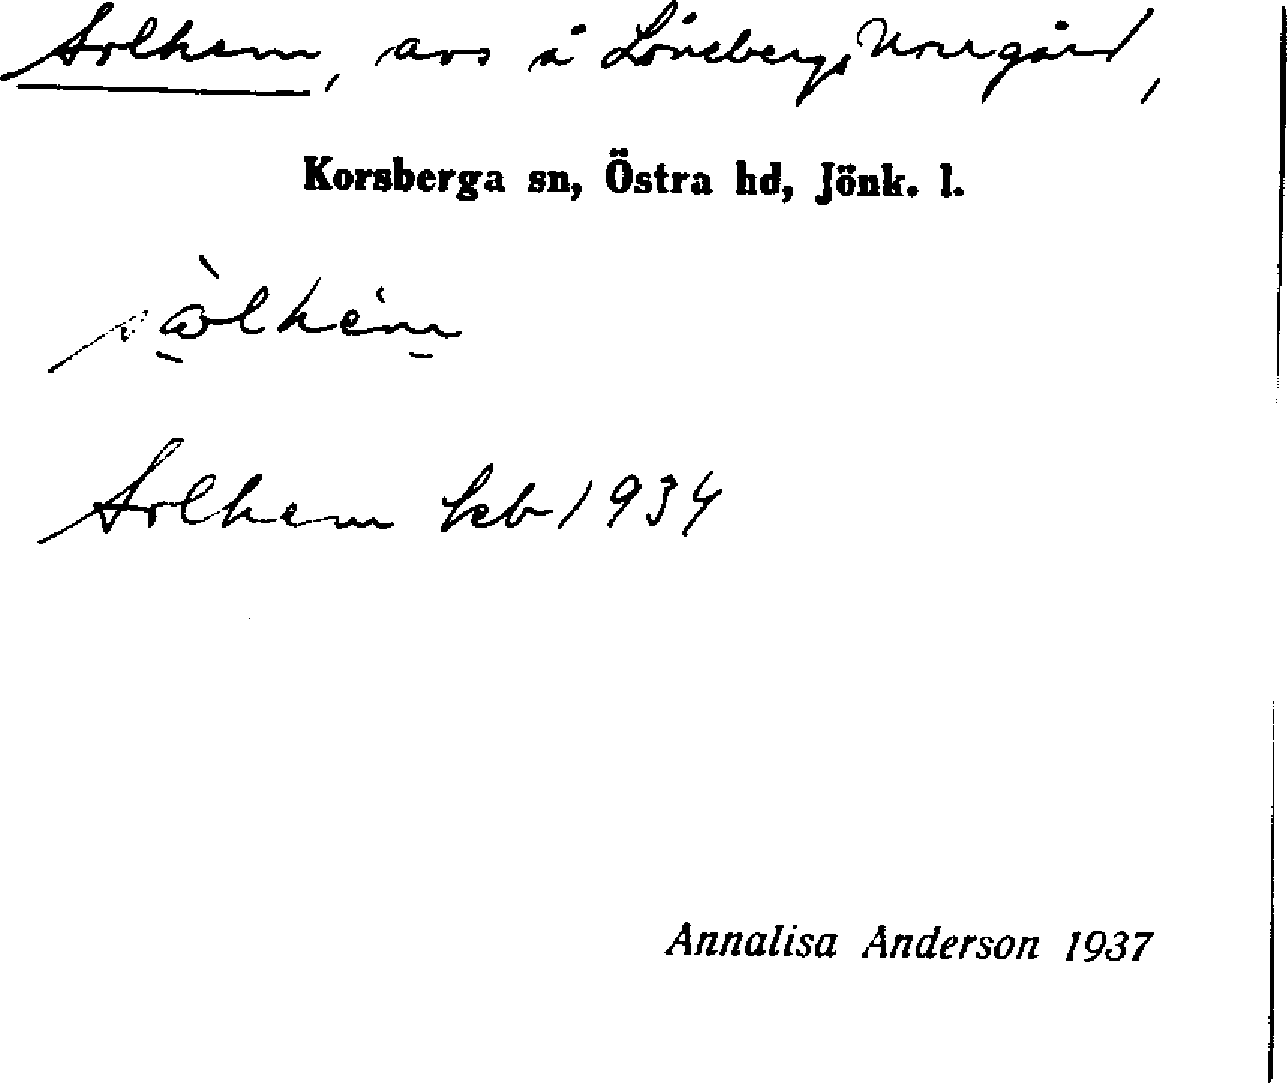 Solhem, avs å Löneberg, Norrgård,
Korsberga sn, Östra hd, Jönk. l.
Solhem kb 1934
Annalisa Anderson 1937